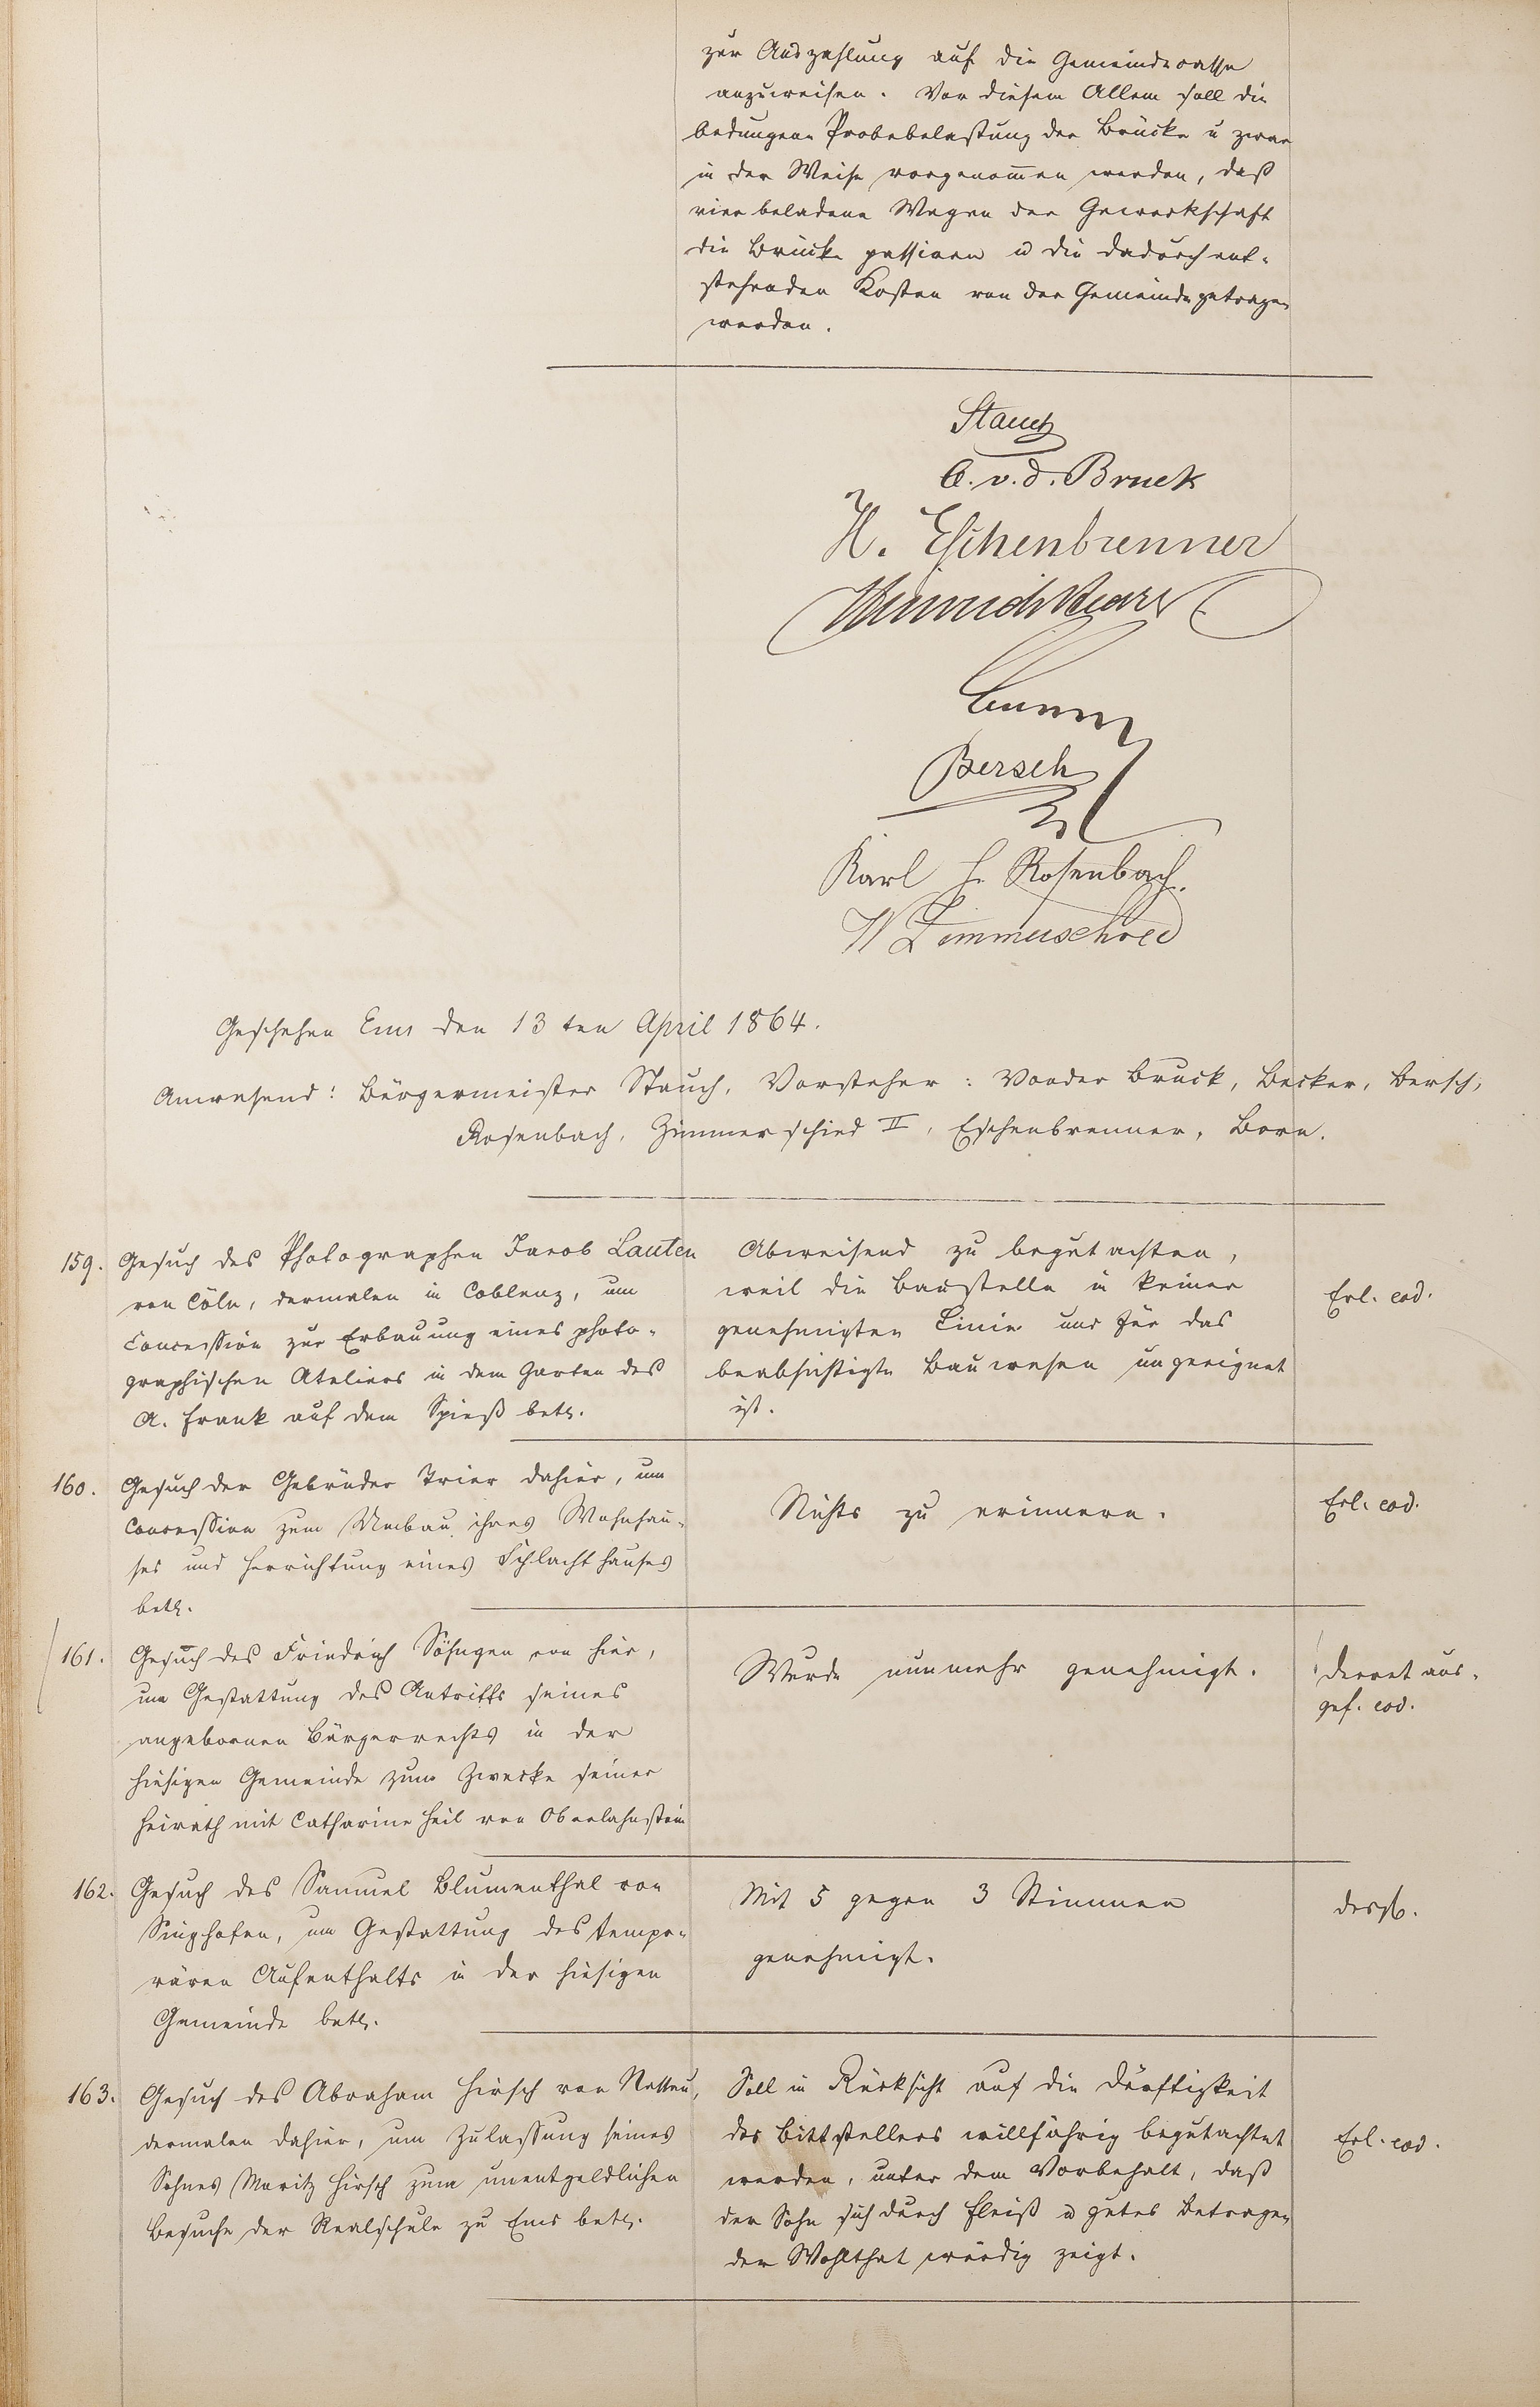 zur Auszahlung auf die Gemeindecasse
anzuweisen. Vor diesem Allem soll die
bedungene Probebelastung der Brücke u zwar
in der Weise vorgenom̅en werden, daß
vier beladene Wagen der Gewerkschaft
die Brücke passiren u die dadurch ent-
stehenden Kosten von der Gemeinde getragen
werden.
Stauch
C. v. d. Bruck
H. Eschenbrenner
Heinrich
Bersch
Karl H. Rosenbach.
W Zimmerschied
Geschehen Ems den 13ten April 1864.
Anwesend: Bürgermeister Stauch, Vorsteher: Vonder Bruck, Becker, Bersch,
Rosenbach, Zimmerschied II, Eschenbrenner, Born.
159. Gesuch des Photographen Jacob Lauten
von Cöln, dermalen in Coblenz, um
Concession zur Erbauung eines photo-
graphischen Ateliers in dem Garten des
A. Frank auf dem Spieß betr.
Abweisend zu begutachten,
weil die Baustelle in keiner
genehmigten Linie und für das
beabsichtigte Bauwesen ungeeignet
ist.
Erl. eod.
160. Gesuch der Gebrüder Trier dahier, um
Concession zum Umbau ihres Wohnhau-
ses und Herrichtung eines Schlachthauses
betr.
Nichts zu erinnern.
Erl. eod.
161. Gesuch des Friedrich Söhngen von hier,
um Gestattung des Antritts seines
angebornen Bürgerrechts in der
hiesigen Gemeinde zum Zwecke seiner
Heirath mit Catharine Heil von Oberlahnstein
Wurde nunmehr genehmigt.
Decret aus-
gef. eod.
162. Gesuch des Samuel Blumenthal von
Singhofen, um Gestattung des tempo-
rären Aufenthalts in der hiesigen
Gemeinde betr.
Mit 5 gegen 3 Stimmen
genehmigt.
desgl.
163. Gesuch des Abraham Hirsch von Nassau,
dermalen dahier, um Zulassung seines
Sohnes Moritz Hirsch zum unentgeldlichen
Besuche der Realschule zu Ems betr.
Soll in Rücksicht auf die Dürftigkeit
des Bittstellers willfährig begutachtet
werden, unter dem Vorbehalt, daß
der Sohn sich durch Fleiß u gutes Betragen
der Wohlthat würdig zeigt.
Erl. eod.